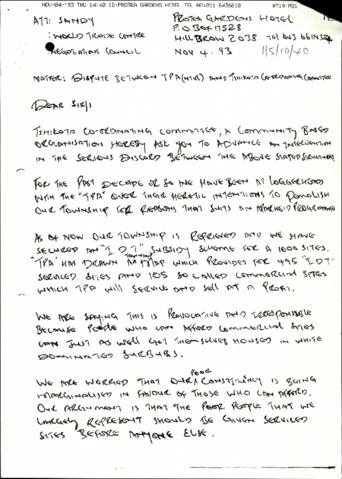 NOV-04-'93 THU 14:40 ID:PROTEA GARDENS HOTEL TEL NO:011 6436610 #719 P01
ATT: SANDY
PROTEA GARDENS HOTEL
P.O BOX 17528
: WORLD TRADE CENTRE
HILLBROW 2038 TEL 643 6610
: NEGOTIATING COUNCIL
NOV 4. 93
1/5/10/40
MATTER: DISPUTE BETWEEN TPA AND TSHIKOTA CO-ORDINATING COMMITTEE
DEAR SIR/S
TSHIKOTA CO-ORDINATING COMMITTEE, A COMMUNITY BASED
ORGANISATION HEREBY ASK YOU TO ADVANCE AN INTERVENTION
IN THE SERIOUS DISCORD BETWEEN THE ABOVE STATED STRUCTURES
FOR THE PAST DECADE OR SO WE HAVE BEEN AT LOGGERHEAD
WITH THE "TPA" OVER THEIR INTENTIONS TO DEMOLISH
OUR TOWNSHIP FOR REASONS THAT SUITS AN APARTHEID PROGRAMME
AS OF NOW OUR TOWNSHIP IS REPRIEVED AND WE HAVE
SECURED AN "IDT" SUBSIDY SCHEME FOR A 1000 SITES.
"TPA" HAS DRAWN A MAP WHICH PROVIDES FOR 495 "IDT"
SERVICED SITES AND 105 SO CALLED COMMERCIAL SITES
WHICH TPA WILL SERVICE AND SELL AT A PROFIT.
WE ARE SAYING THIS IS PROVOCATIVE AND IRRESPONSIBLE
BECAUSE PEOPLE WHO CAN AFFORD COMMERCIAL SITES
CAN JUST AS WELL GET THEMSELVES HOUSED IN WHITE
DOMINATED SURBUBS.
WE ARE WORRIED THAT OUR POOR CONSTITUENCY IS BEING
MARGINALISED IN FAVOUR OF THOSE WHO CAN AFFORD.
OUR ARGUMENT IS THAT THE POOR PEOPLE THAT WE
LARGELY REPRESENT SHOULD BE GIVEN SERVICED
SITES BEFORE ANYONE ELSE.